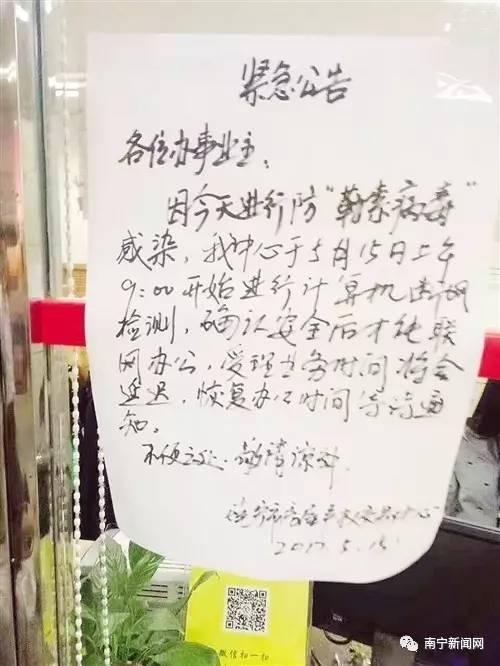 紧急公告
各位办事业主：
因今天进行防“勒索病毒”
感染，我中心于5月15日上午
9:00开始进行计算机断网
检测，确认安全后才能联
网办公，受理业务时间将会
延迟，恢复办公时间等待通
知。
不便之处，敬请谅解。
南宁市
中心
2017.5.15
微信扫一扫
南宁新闻网